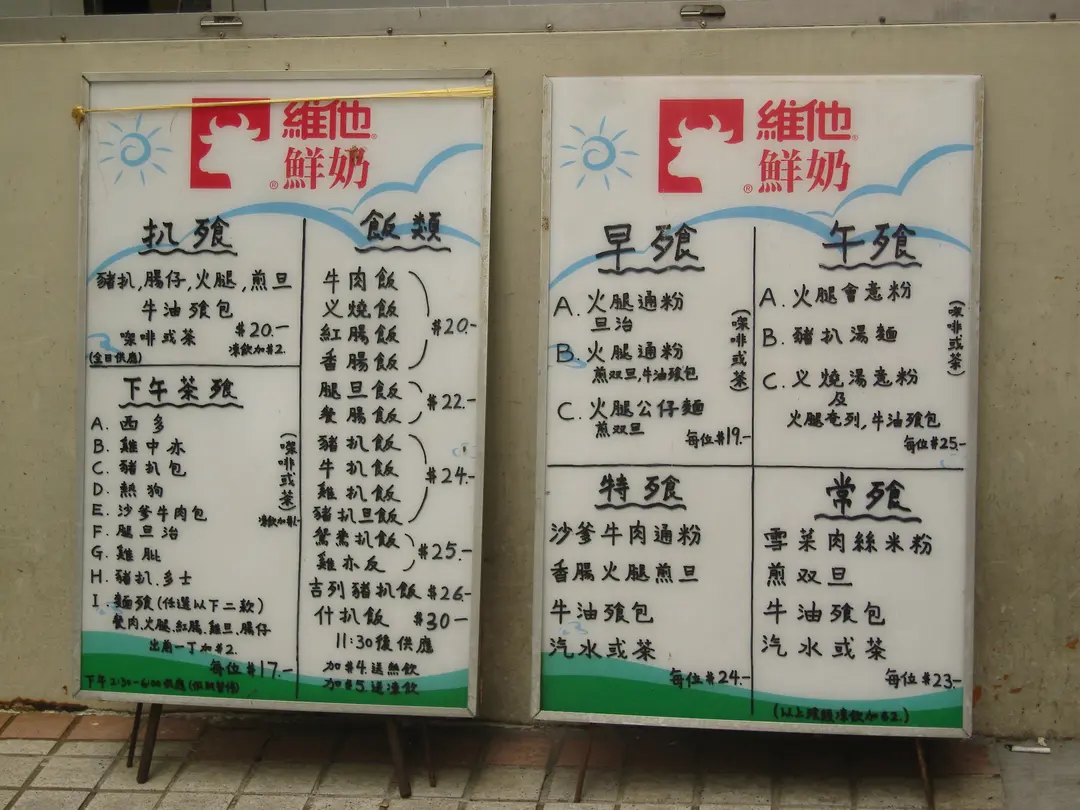 維他®
鮮奶
®
扒飡
豬扒,腸仔,火腿,煎旦
牛油飡包
㗎啡或茶 $20.-
(全日供應) 凍飲加$2.
下午茶飡
A. 西多
B. 雞中亦
C. 豬扒包
D. 熱狗
E. 沙爹牛肉包
F. 腿旦治
G. 雞肶
H. 豬扒.多士
I. 麵飡(任選以下二款)
餐肉,火腿,紅腸,雞旦,腸仔
出前一丁加$2.
每位$17.-
下午2:30-6:00供應(假期暫停)
(㗎啡或茶)
飯類
牛肉飯
义燒飯
紅腸飯
香腸飯
$20-
腿旦飯
餐腸飯
$22.-
豬扒飯
牛扒飯
雞扒飯
豬扒旦飯
$24.-
鴛鴦扒飯
雞亦反
$25.-
吉列豬扒飯 $26-
什扒飯 $30-
11:30後供應
加$4.送熱飲
加$5.送凍飲
維他®
鮮奶
®
早飡
A. 火腿通粉
旦治
B. 火腿通粉
煎双旦,牛油飡包
C. 火腿公仔麵
煎双旦
每位$19.-
(㗎啡或茶)
午飡
A. 火腿會意粉
B. 豬扒湯麵
C. 义燒湯意粉
及
火腿奄列,牛油飡包
每位$25.-
(㗎啡或茶)
特飡
沙爹牛肉通粉
香腸火腿煎旦
牛油飡包
汽水或茶
每位$24.-
常飡
雪菜肉絲米粉
煎双旦
牛油飡包
汽水或茶
每位$23.-